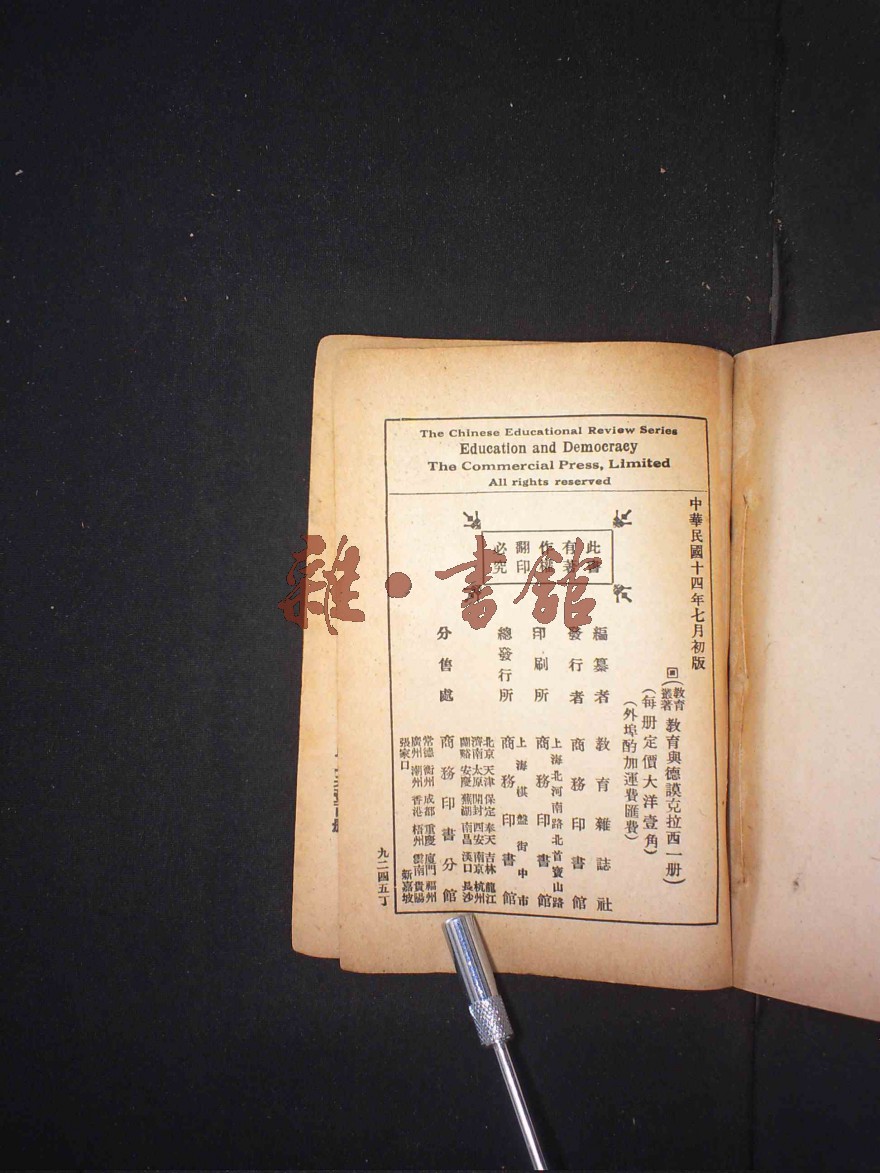 The Chinese Educational Review Series
Education and Democracy
The Commercial Press, Limited
All rights reserved
中華民國十四年七月初版
教育叢著
教育與德謨克拉西一册
(每册定價大洋壹角)
(外埠酌加運費匯費)
此書
有著
作權
翻印
必究
編纂者 教育雜誌社
發行者 商務印書館
上海北河南路北首寶山路
印刷所 商務印書館
上海棋盤街中市
總發行所 商務印書館
北京 天津 保定 奉天 吉林 龍江
濟南 太原 開封 西安 南京 杭州
蘭谿 安慶 蕪湖 南昌 漢口 長沙
分售處 商務印書分館
常德 衡州 成都 重慶 廈門 福州
廣州 潮州 香港 梧州 雲南 貴陽
張家口 新嘉坡
九二四五丁
雜·書館